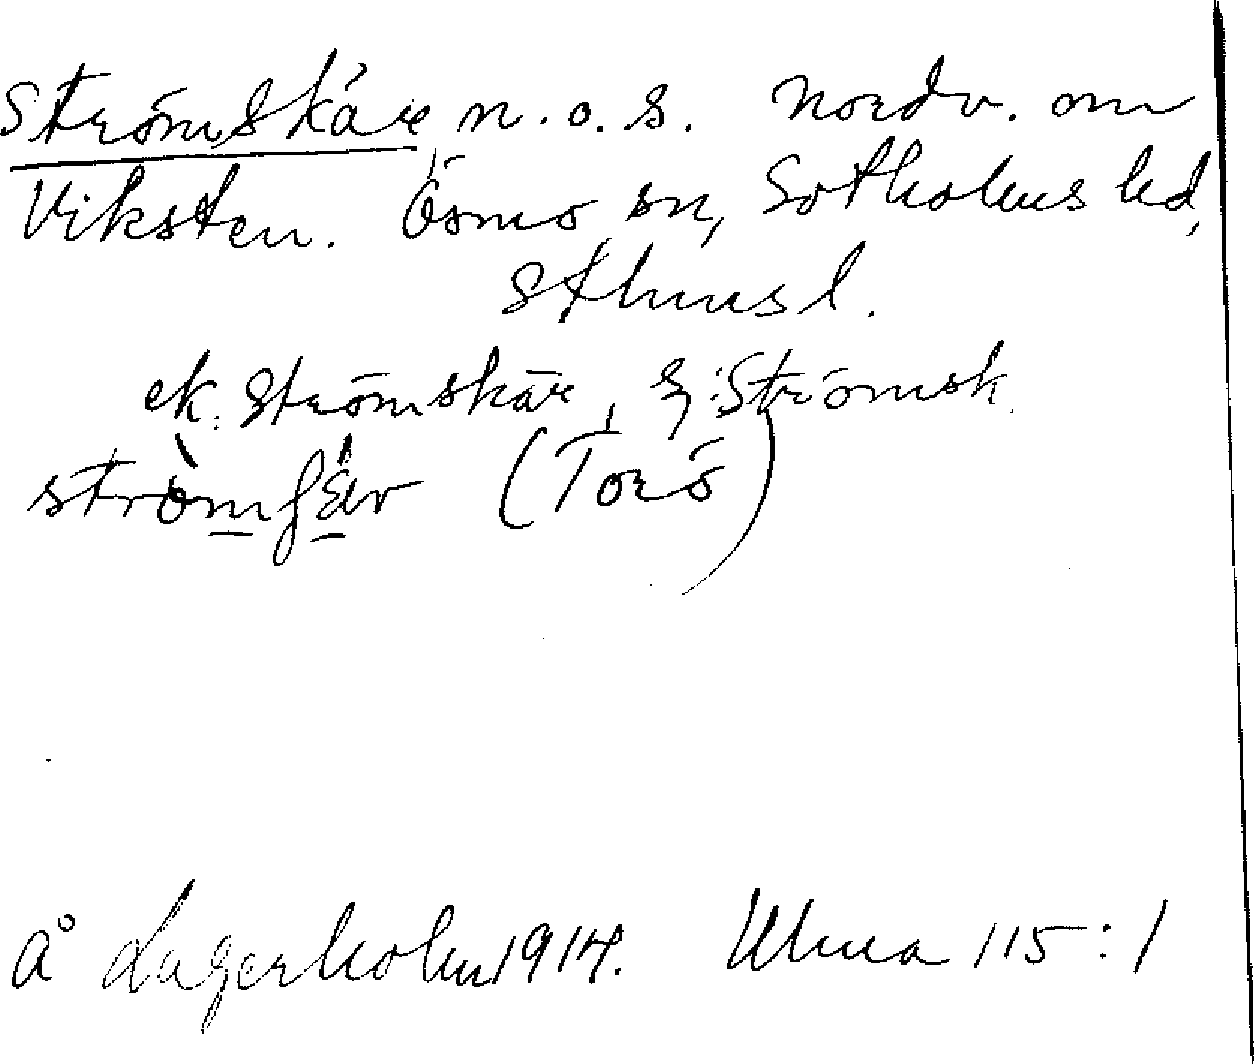 Strömskär, n. o. s. Nordv. om
Viksten. Ösmo sn, Sotholms hd,
Sthms l.
ek. Strömskär, Strömsk.
(Torö)
Å Lagerholm 1914. Ulma 115:1